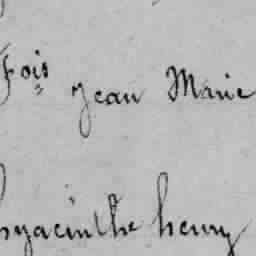 Fois Jean Marie
hyacinthe henry